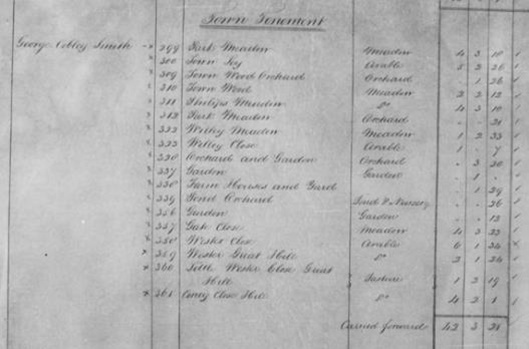 Town Tenement
George Cobley Smith 299 Park Meadow Meadow 4 3 10
300 Town Ley Arable 5 2 26
309 Town Wood Orchard Orchard 1 26
310 Town Wood Meadow 2 3 12
311 Philips Meadow Do 4 3 10
312 Park Meadow Orchard 21
322 Willey Meadow Meadow 1 2 33
323 Willey Close Arable 1 - 7
Orchard and Garden Orchard 3 20
337 Garden Garden 1
338 Farm Houses and Yard 1 29
339 Pond Orchard 26
356 Garden Garden 12
357 Gate Close Meadow 4 3 23
358 Wester Close Arable 6 1 24
359 Wester Great Hill Do 2 1 24
360 Little Wester Close Great
Hill Pasture 1 2 19
361 Coney Close Hill Do 4 2 1
Carried forward 42 3 21